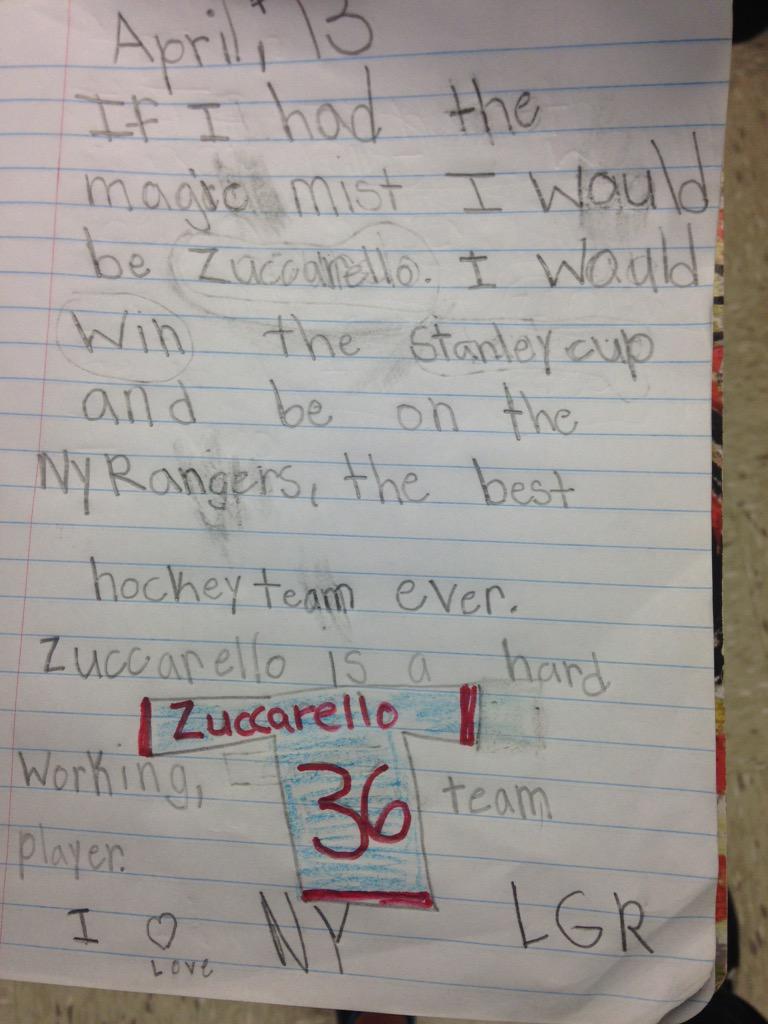 April, 13
If I had the
magic mist I would
be Zuccarello. I would
Win the Stanley cup
and be on the
NY Rangers, the best
hockey team ever.
Zuccarello is a hard
Zuccarello
Working, 36 team
player.
I ♡ NY LGR
Love